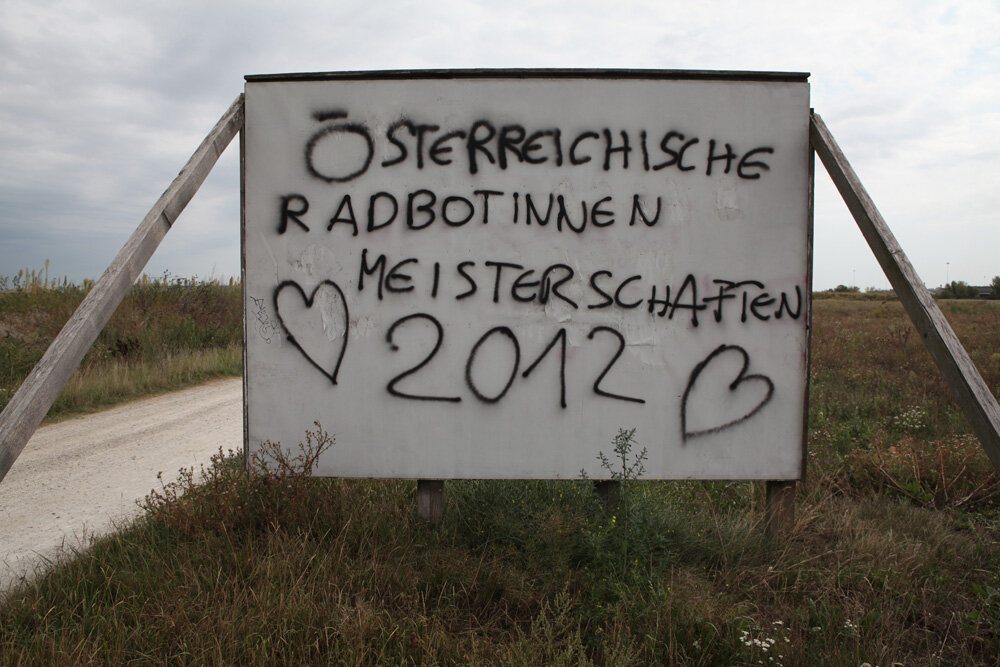 ÖSTERREICHISCHE
RADBOTINNEN
MEISTERSCHAFTEN
2012